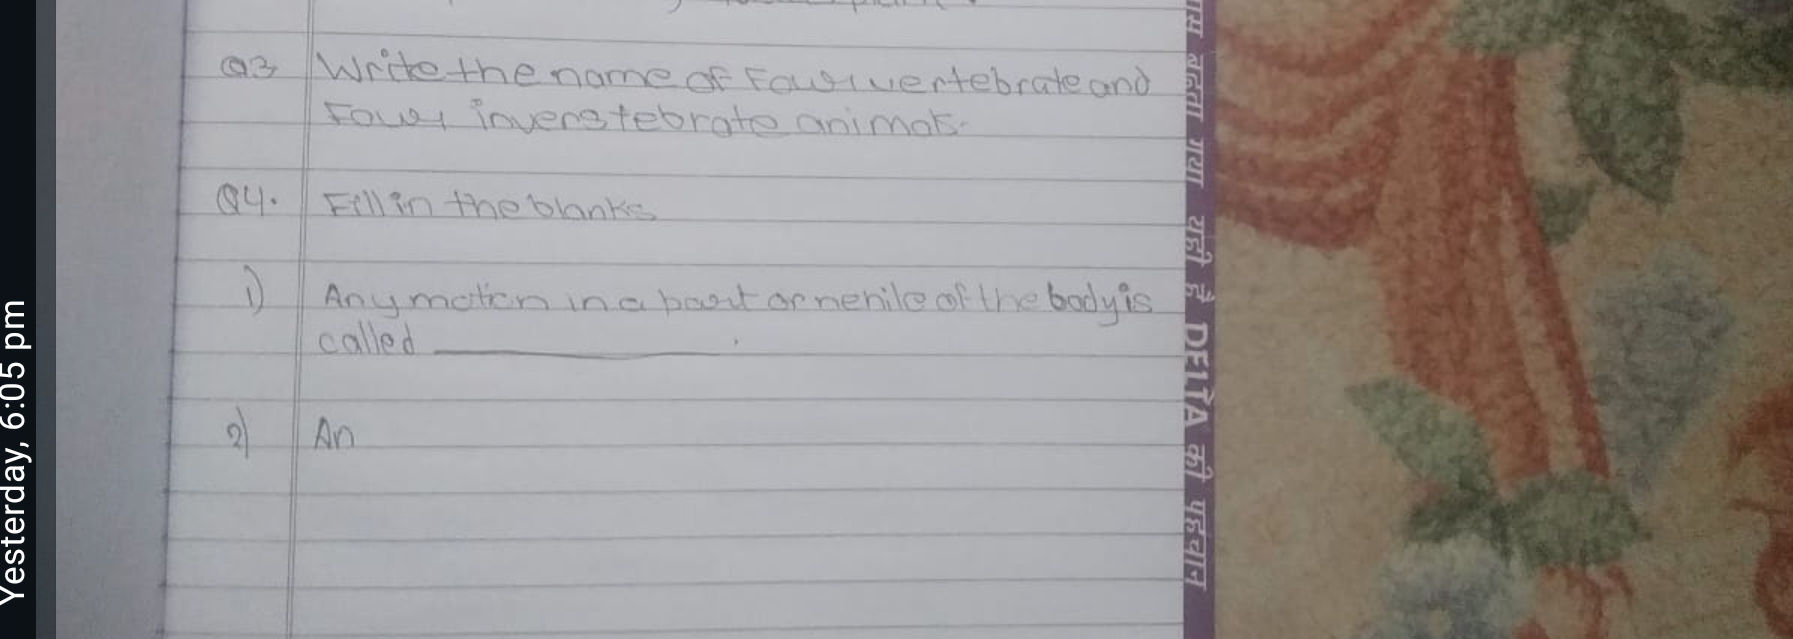 Q3 Write the name of Four vertebrate and
Four inverstebrate animals.
Q4. Fill in the blanks
1) Any motion in a part or nehile of the body is
called ___________.
2) An
यहाँ है DELTA की पहचान
Yesterday, 6:05 pm